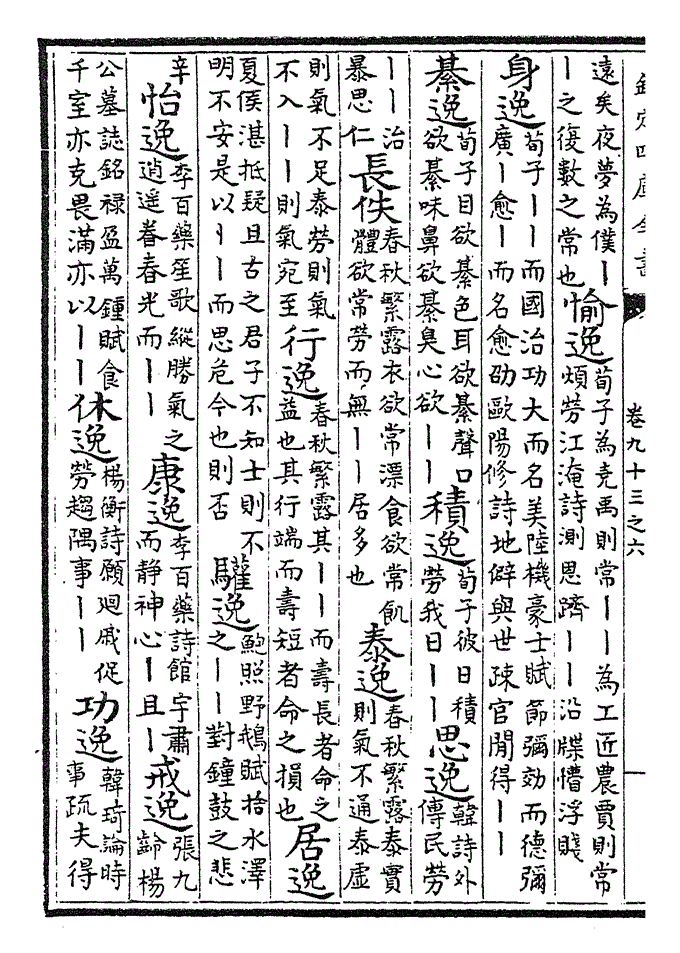 欽定四庫全書
卷九十三之六
一
遠矣夜夢為僕丨丨之復數之常也愉逸荀子為堯禹則常丨丨為工匠農賈則常煩勞江淹詩測思躋丨丨沿牒懵浮賤
身逸荀子丨丨而國治功大而名美陸機豪士賦節彌効而德彌廣丨愈丨而名愈劭歐陽修詩地僻與世疎官閒得丨丨
綦逸荀子目欲綦色耳欲綦聲口欲綦味鼻欲綦臭心欲丨丨積逸荀子彼日積勞我日丨丨思逸韓詩外傳民勞
丨丨治暴思仁長佚春秋繁露衣欲常漂食欲常飢體欲常勞而無丨丨居多也泰逸春秋繁露泰實則氣不通泰虛
則氣不足泰勞則氣不入丨丨則氣宛至行逸春秋繁露其丨丨而壽長者命之益也其行端而壽短者命之損也居逸
夏侯湛抵疑且古之君子不知士則不明不安是以丨丨而思危今也則否驩逸鮑照野鵝賦捨水澤之丨丨對鐘鼓之悲
辛怡逸李百藥笙歌縱勝氣之逍遥眷春光而丨丨康逸李百藥詩館宇肅而静神心丨且丨戒逸張九齡楊
公墓誌銘禄盈萬鍾賦食千室亦克畏滿亦以丨丨休逸楊衡詩願廻戚促勞趨隅事丨丨功逸韓琦論時事疏夫得